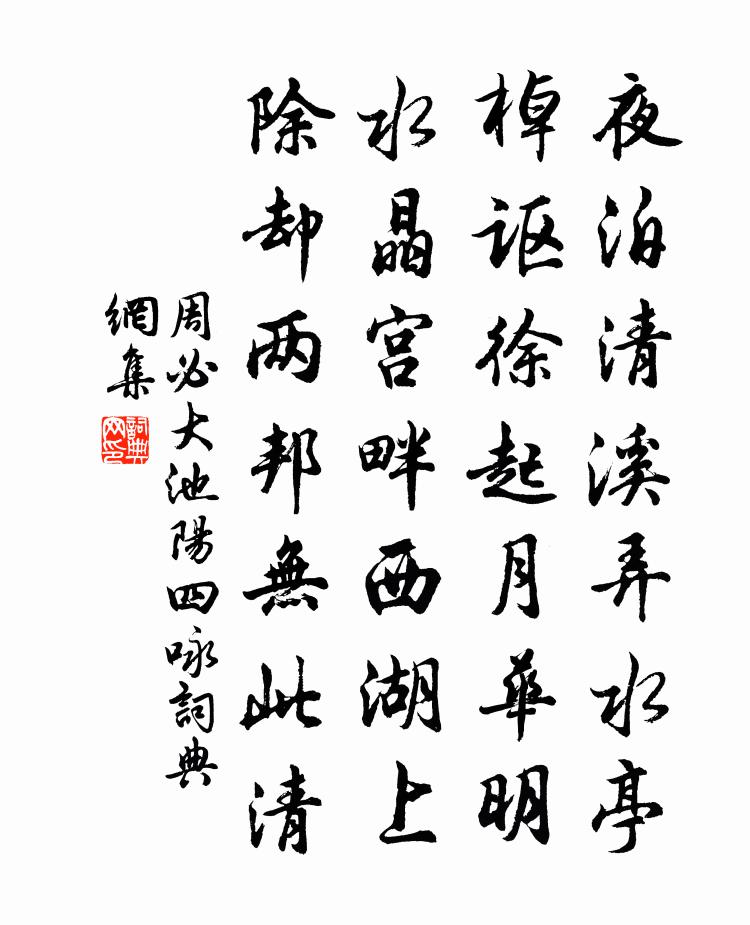 夜泊清溪弄水亭
棹讴徐起月华明
水晶宫畔西湖上
除却两邦無此清
周必大池陽四咏詞典
網集
詞典网印